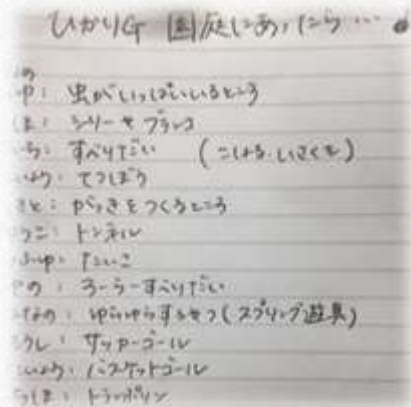 ひかりG 園庭にあったら…
の
ゆ：虫がいっぱいいるところ
ま：シーソーやブランコ
すべりだい（こしょう、いさくも）
よう：てつぼう
さと：がっきをつくるところ
うこ：トンネル
ふゆ：たいこ
の：ろーらーすべりだい
なの：ゆらゆらするやつ（スプリング遊具）
サッカーゴール
バスケットゴール
トランポリン